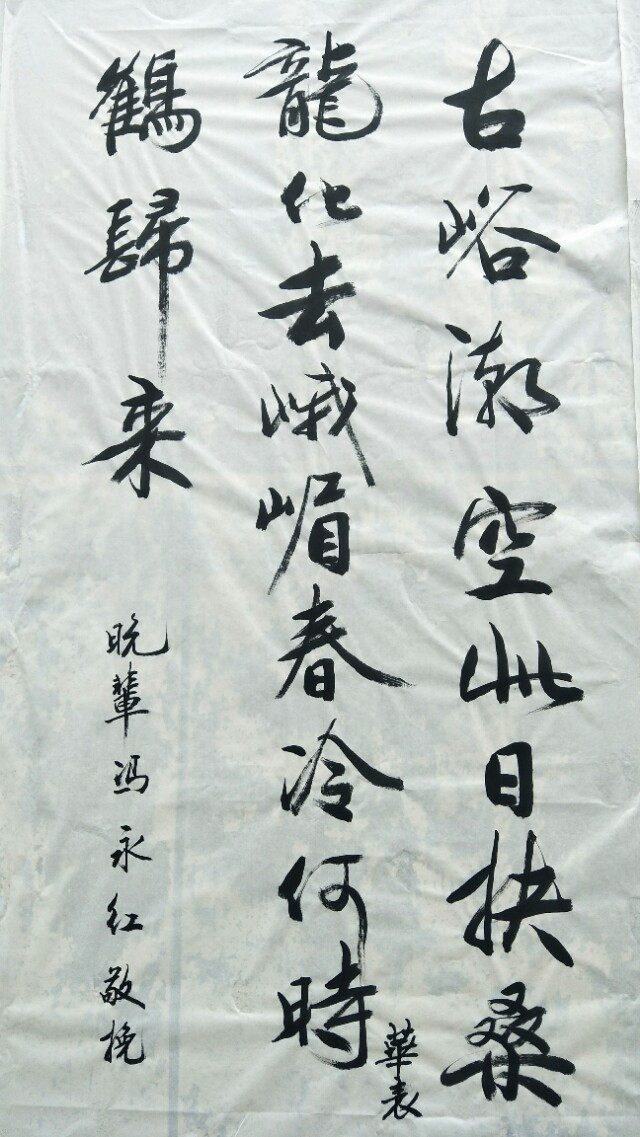 古峪潮空此日扶桑
龍化去峨嵋春冷何時
華表
鶴歸来
晚輩冯永红敬挽